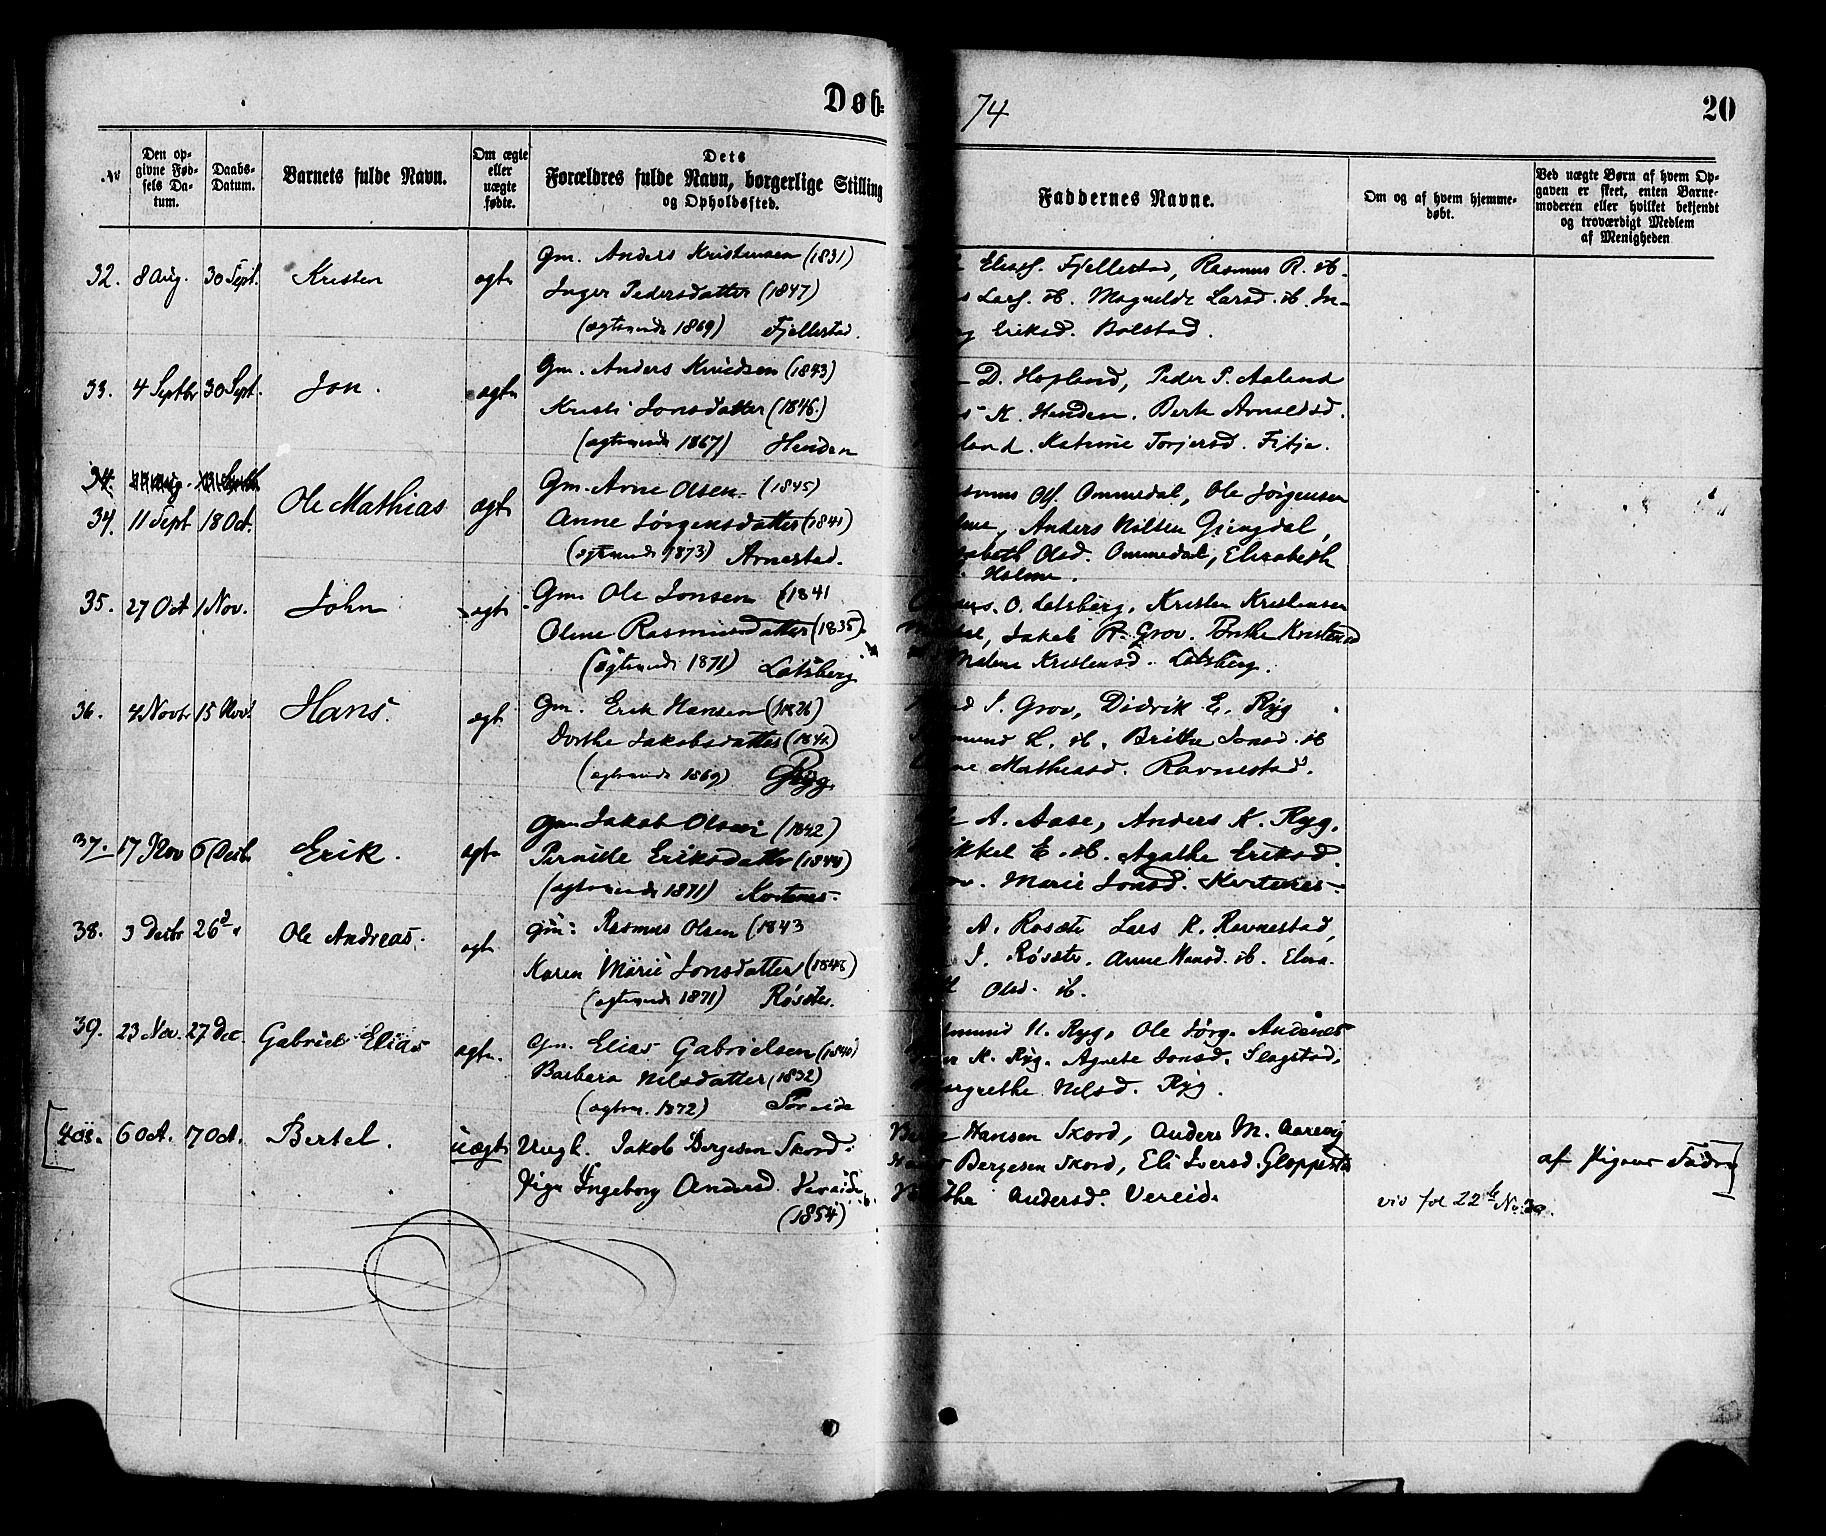 Døb-
74
20
No
Den op-
givne Fød-
sels Da-
tum.
Daabs-
Datum.
Barnets fulde Navn.
Om ægte
eller
uægte
fødte.
Dets
Forældres fulde Navn, borgerlige Stilling
og Opholdssted.
Faddernes Navne.
Om og af hvem hjemme-
døbt.
Ved uægte Børn af hvem Op-
gaven er skeet, enten Barne-
moderen eller hvilket bekjendt
og troværdigt Medlem
af Menigheden
32. 8 Aug. 30 Sept. Kristen ægte
Gm. Anders Kristensen (1831)
Inger Pedersdatter (1847)
(ægteviede 1869) Fjellestad.
Eliasf. Fjellestad, Rasmus R. ib.
Larsf. ib. Magnilde Larsd. ib. In-
Eriksd. Bolstad.
33. 4 Septbr 30 Sept. Jon. ægte
Gm. Anders Knudsen (1843)
Kristi Jonsdatter (1846)
(ægteviede 1867) Henden
D. Hopland, Peder P. Aaland
K. Henden. Berte Arnesd.
land. Katrine Torjersd. Fitje.
34.
34. 11 Sept 18 Oct. Ole Mathias ægte
Gm. Arne Olsen (1845)
Anne Jørgensdatter (1841)
(ægteviede 1873) Arnestad.
Olf. Ommedal, Ole Jørgensen
Anders Nilsen Gjengdal,
Olsd. Ommedal, Elisabeth
Holme.
35. 27 Oct 1 Nov. John ægte
Gm. Ole Jonsen (1841
Oline Rasmusdatter (1835)
(ægteviede 1871) Lotsberg
O. Lotsberg, Kristen Kristensen
Jakob R. Grov. Brithe Kristensd
Malene Kristensd. Lotsberg.
36. 4 Novbr 15 Nov. Hans. ægte
Gm. Erik Hansen (1826)
Dorthe Jakobsdatter
(ægteviede 1869) Ryg.
J. Grov, Didrik E. Ryg
L. ib. Brithe Jonsd. ib
Mathiasd. Ravnestad.
37. 17 Nov 6 Decbr. Erik. ægte
Gm Jakob Olsen (1842)
Pernille Eriksdatter
(ægteviede 1871) Kortenes.
A. Aase, Anders K. Ryg.
E. ib. Agathe Eriksd.
Marie Jonsd. Kortenes.
38. 3 Decbr 26 d. Ole Andreas. ægte
Gm: Rasmus Olsen (1843
Karen Marie Jonsdatter (1848)
(ægteviede 1871) Røsæte.
A. Rosæte Lars R. Ravnestad,
J. Røsæte. Anne Hansd. ib. Elisa-
Olsd. ib.
39. 23 Nov. 27 Dec. Gabriel Elias ægte.
Gm. Elias Gabrielsen (1840)
Barbara Nilsdatter (1832)
(ægtev. 1872)
N. Ryg, Ole Jørg. Andenes
K. Ryg. Agnete Jonsd. Slagstad,
Nilsd. Ryg.
6 Oct. 7 Oct. Bertel. uægte
Ungk. Jakob Børgesen Skord.
Pige Ingeborg Andersd. Vereide.
(1854)
Hansen Skord, Anders M. Aarevig
Børgesen Skord, Eli Iversd. Gloppestad
Andersd. Vereide
vid fol 22
af Pigens Fader